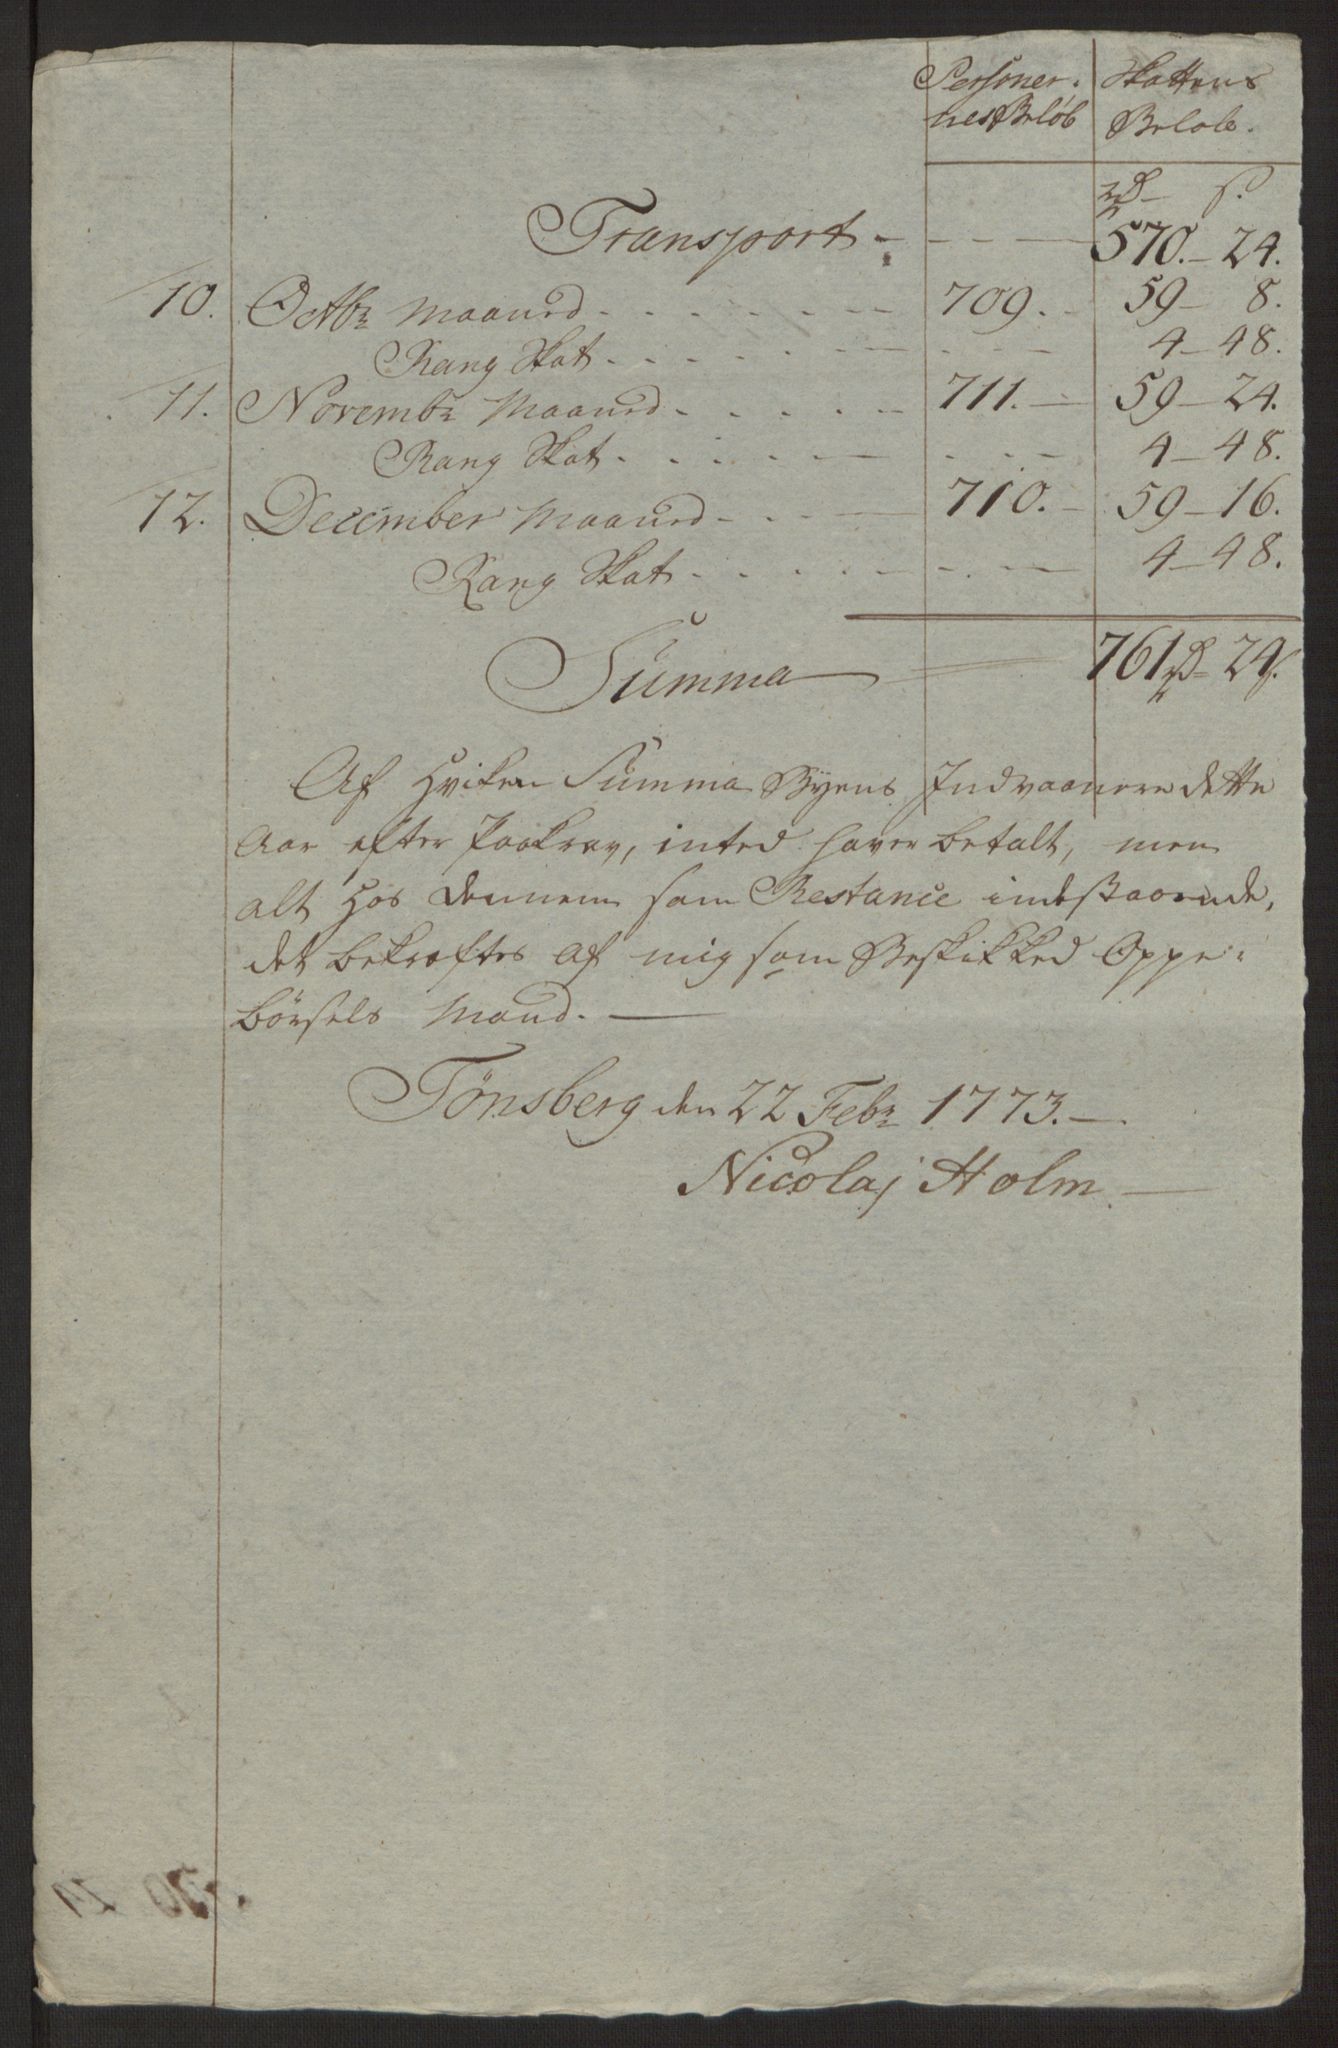 Personer: Skattens
nes Beløb Beløb.
rd s.
Transport - - - - 570. - 24.
10. Octbr Maaned - - - - 709. - 59 - 8.
Rang Skat - - - - 4 - 48.
11. Novembr Maaned - - - - 711. - 59 - 24.
Rang Skat - - - - 4 - 48.
12. December Maaned - - - 710. - 59 - 16.
Rang Skat - - - - 4 - 48.
Summa - 761 rd - 24 s.
Af Hvilken Summa Byens Indvaanere dette
Aar efter Paakrav, inted haver betalt, men
alt Hos dennem som Restance indestaaende,
det bekræftes af mig som Beskikked Oppe:
börsels Mand. —
Tönsberg den 22 Febr 1773. —
Nicolaj Holm —